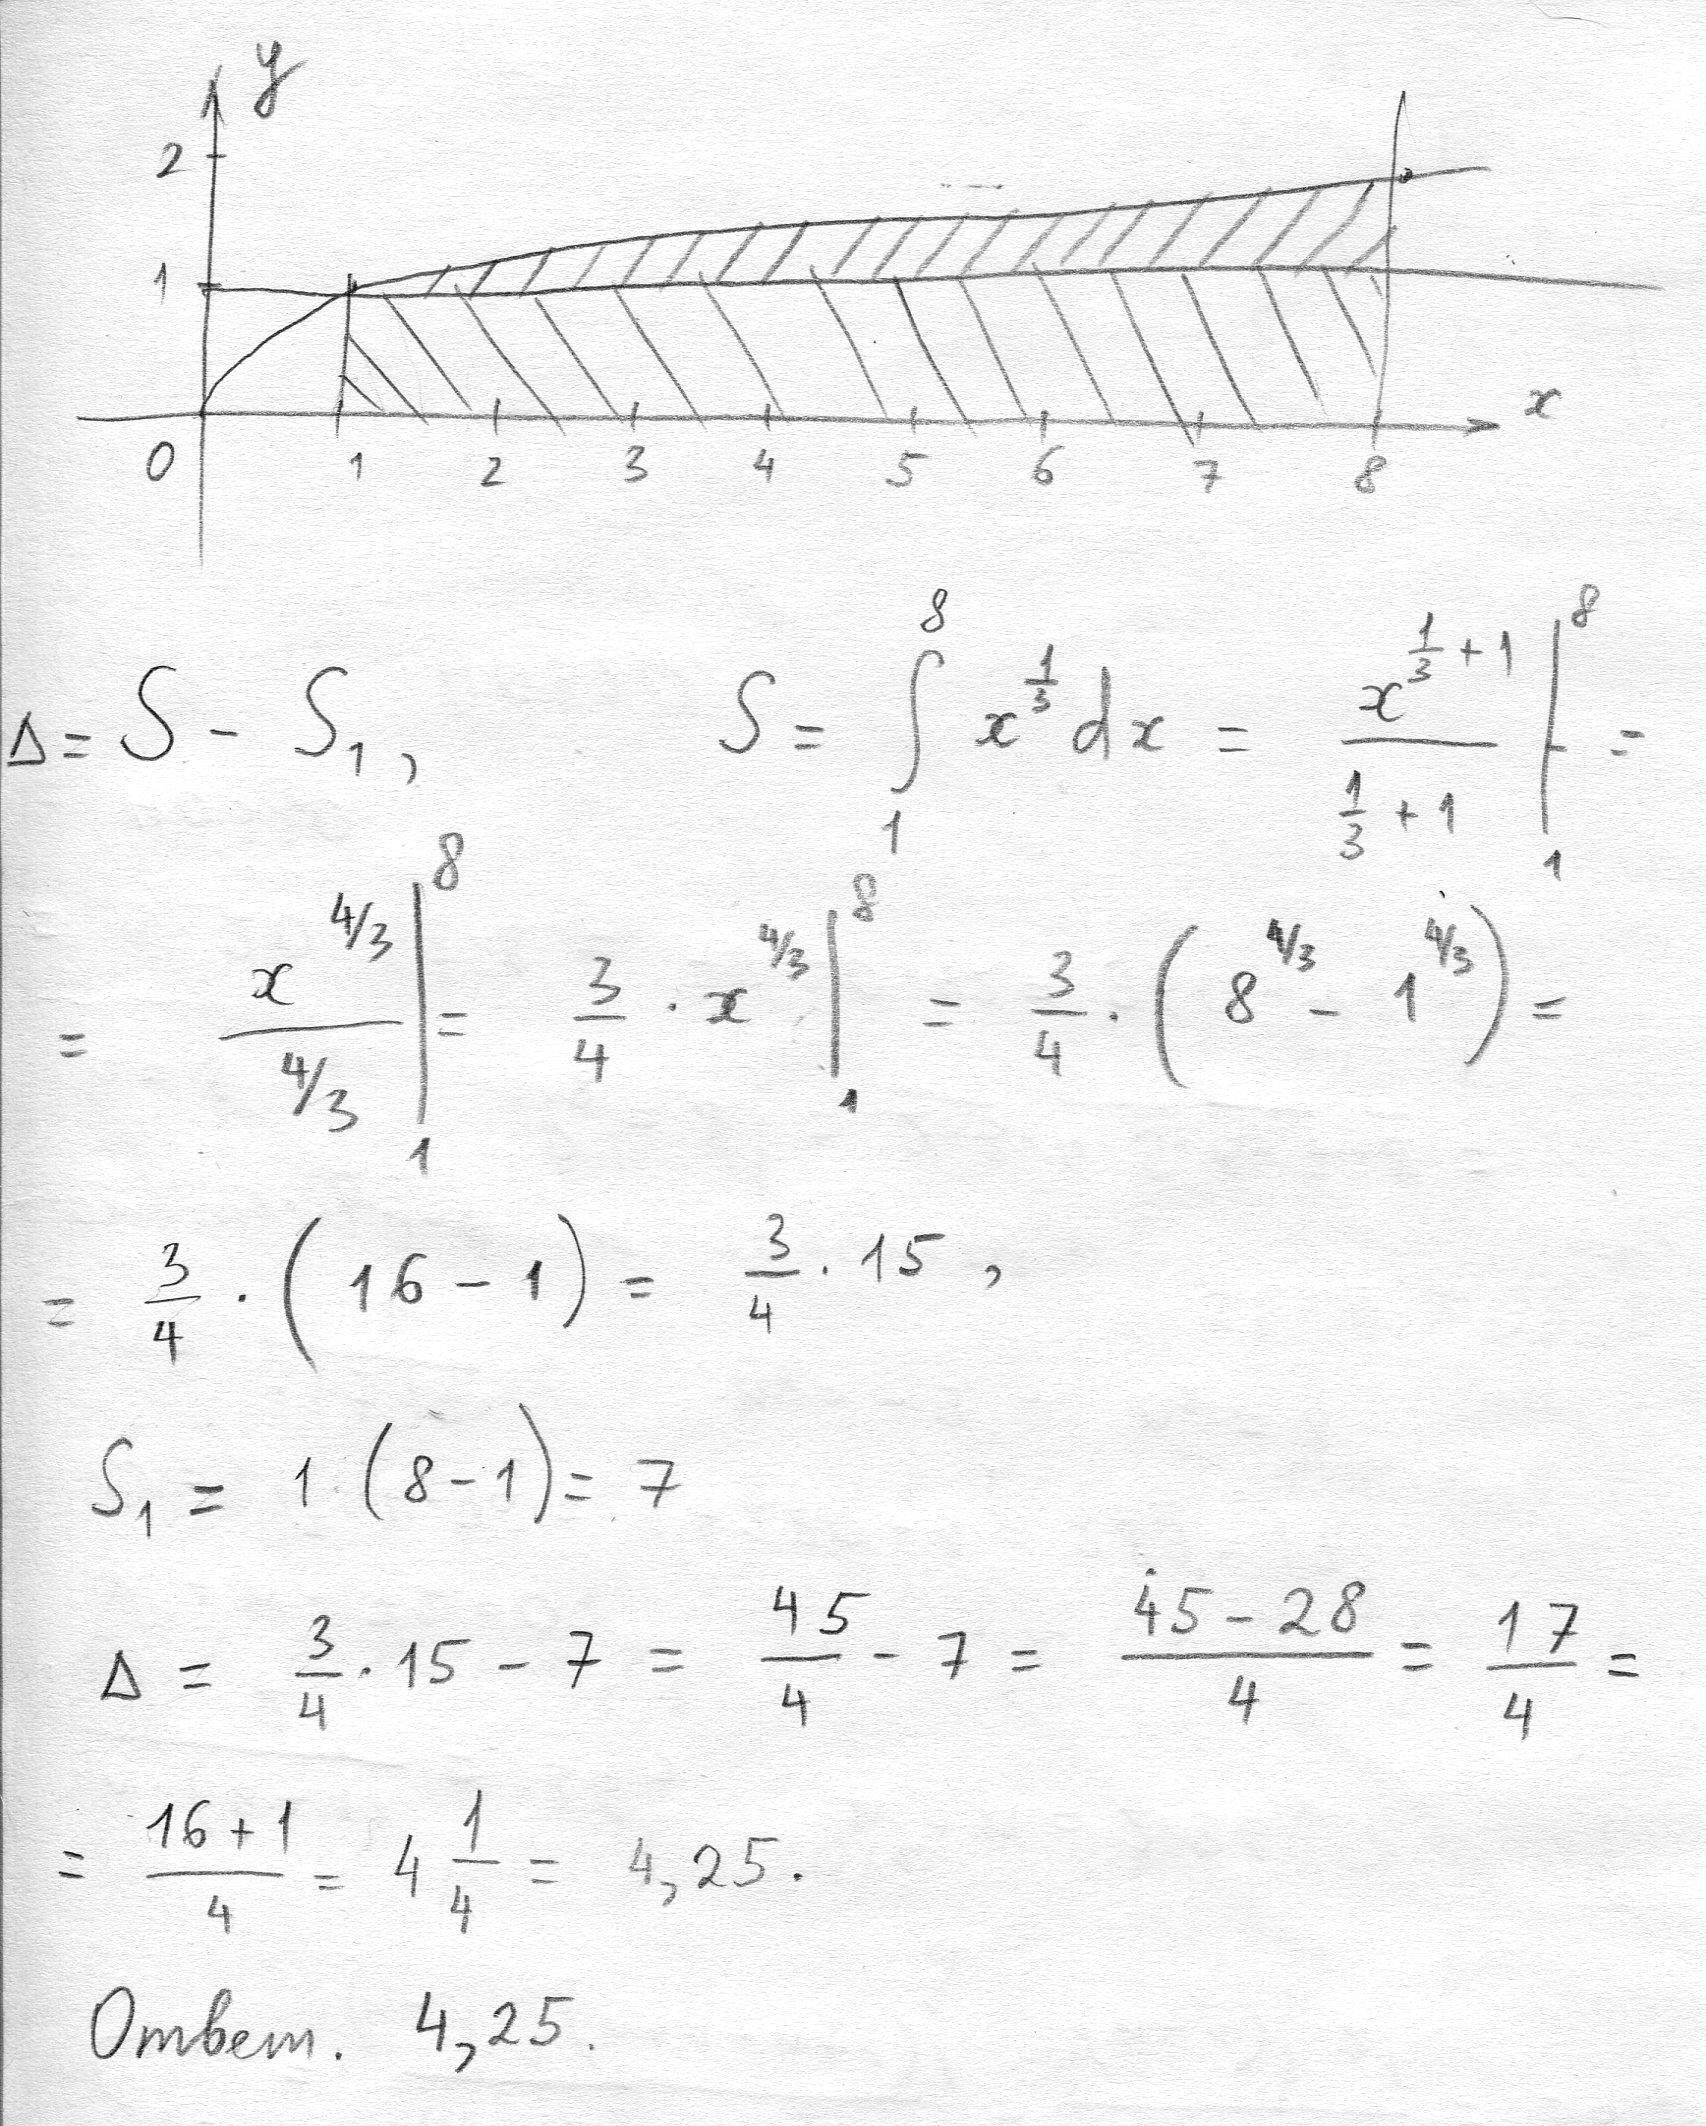 y
2
1
x
0 1 2 3 4 5 6 7 8
Δ = S - S₁, S = ∫₁⁸ x^(1/3) dx = x^(1/3 + 1) / (1/3 + 1) |₁⁸ =
= x^(4/3) / (4/3) |₁⁸ = 3/4 · x^(4/3) |₁⁸ = 3/4 · (8^(4/3) - 1^(4/3)) =
= 3/4 · (16 - 1) = 3/4 · 15,
S₁ = 1 · (8 - 1) = 7
Δ = 3/4 · 15 - 7 = 45/4 - 7 = (45 - 28)/4 = 17/4 =
= (16 + 1)/4 = 4 1/4 = 4,25.
Ответ. 4,25.